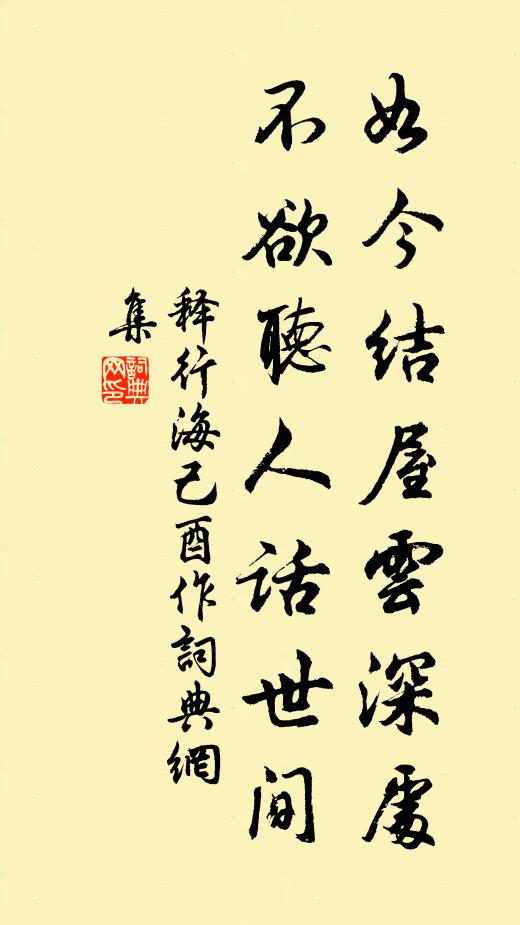 如今结屋雲深處
不欲聽人话世间
释行海己酉作詞典網
集
詞典
网印